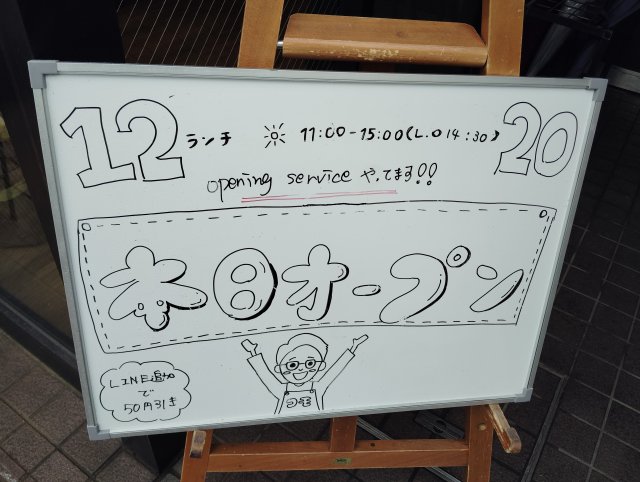 12 ランチ ☼ 11:00-15:00(L.O 14:30) 20
opening service やってます!!
本日オープン
LINE追加
で
50円引き